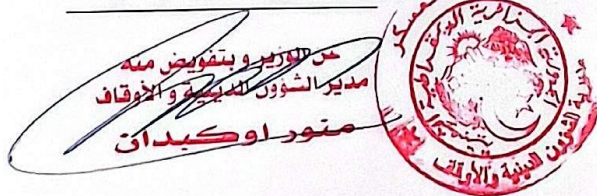 عن الوزير و بتفويض منه
مدير الشؤون الدينية و الأوقاف
منور اوكيدان
معسكر
مديرية الشؤون الدينية والأوقاف